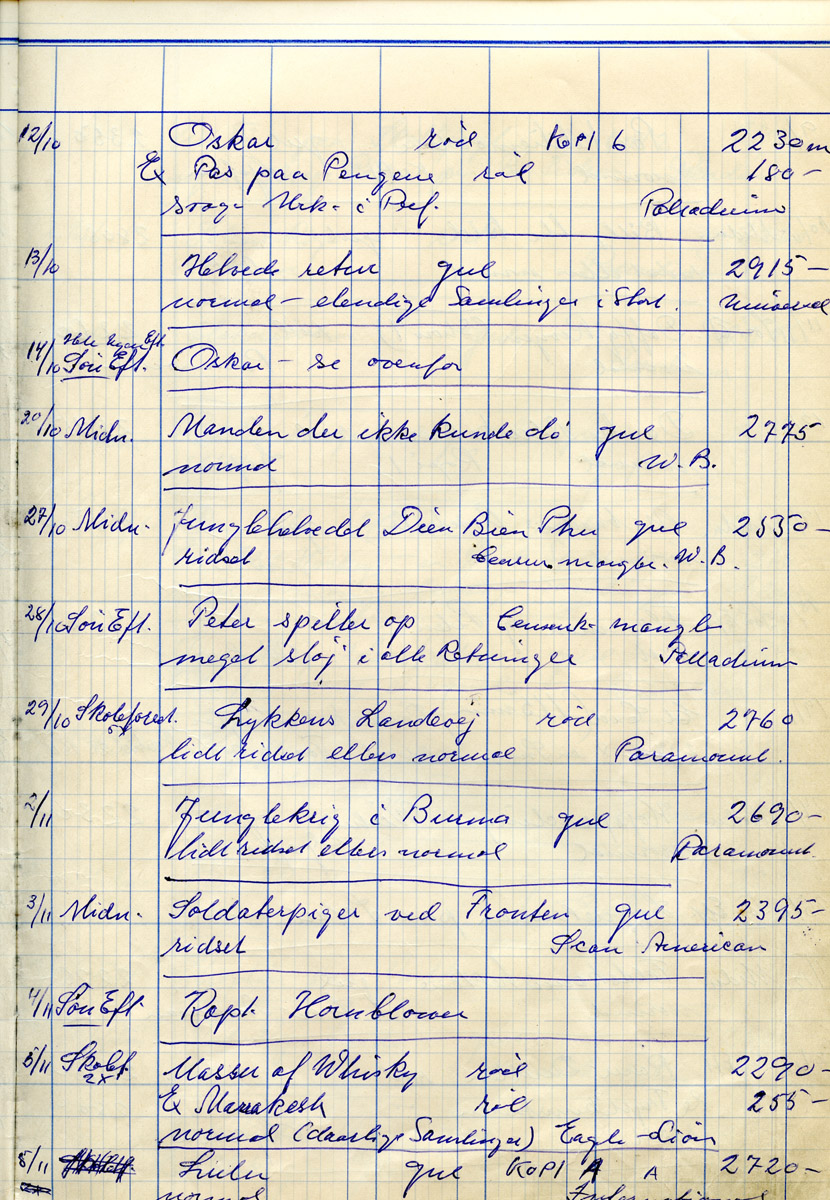 12/10 Oskar rød KOPI 6 2230 m
Ex Pas paa Pengene rød 180 –
svage i Perf. Palladium
13/10 Helvede retur gul 2915 –
normal – elendige Samlinger i Start. Universal
Hele Ugen Eft.
14/10 Søn Eft. Oskar – se ovenfor
20/10 Midn. Manden der ikke kunde dø gul 2775
normal W. B.
27/10 Midn. Junglehelvedet Dien Bien Phu gul 2550 –
ridset Censur mangler. W. B.
28/10 Søn Eft. Peter spiller op Censurk. mangler
meget støj i alle Retninger Palladium
29/10 Skoleforest. Lykkens Landevej rød 2760
5x lidt ridset ellers normal Paramount.
2/11 Junglekrig i Burma gul 2690 –
lidt ridset ellers normal Paramount.
3/11 Midn. Soldaterpiger ved Fronten gul 2395 –
ridset Scan American
4/11 Søn Eft Kapt. Hornblower
5/11 Skolef. Masser af Whisky rød 2290 –
2x Ex Marrakesh rød 255 –
normal (daarlige Samlinger) Eagle-Lion
5/11 Lulu gul KOPI A A 2720 –
2x normal International